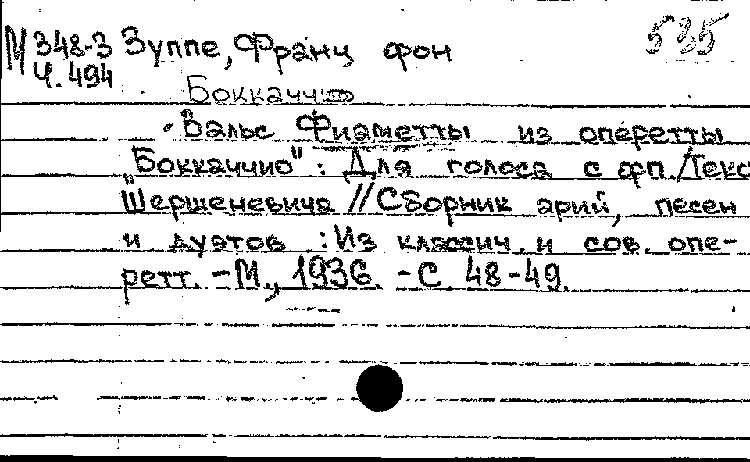 М348-3 Зуппе, Франц фон 535
Ч.494
Боккаччио
Вальс Фиаметты из оперетты
"Боккаччио" : Для голоса с фп. /Текс
Шершеневича // Сборник арий, песен
и дуэтов : Из классич. и сов. опе-
ретт. - М., 1936. - С. 48-49.